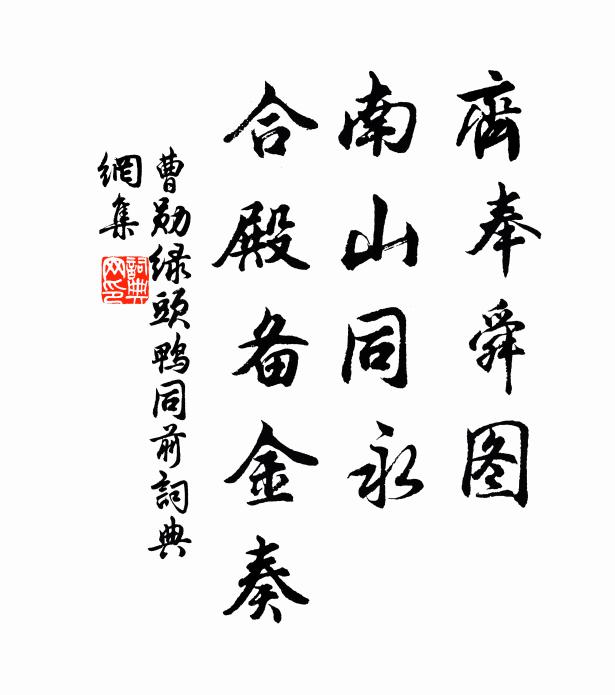 齊奉舜图
南山同永
合殿备金奏
曹勋绿頭鸭同前詞典
網集
詞典
网印